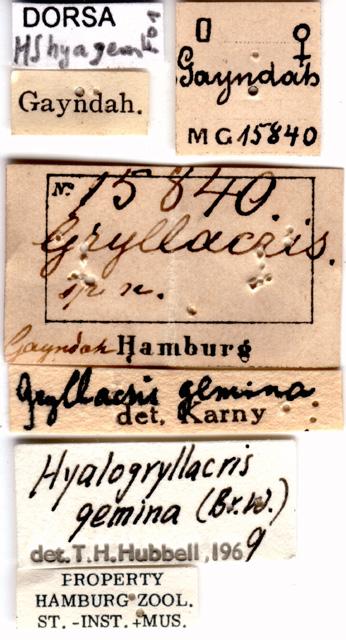 DORSA
HShyagem F01
Gayndah.
♀
Gayndah
MG15840
No. 15840
Gryllacris.
sp n.
Gayndah Hamburg
Gryllacris gemina
det. Karny
Hyalogryllacris
gemina (Br.W.)
det. T.H. Hubbell, 1969
PROPERTY
HAMBURG ZOOL.
ST. -INST. +MUS.